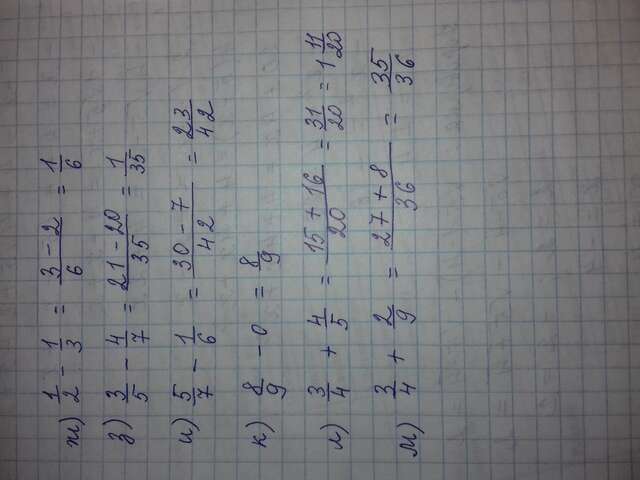 ж) 1/2 - 1/3 = (3 - 2)/6 = 1/6
з) 3/5 - 4/7 = (21 - 20)/35 = 1/35
и) 5/7 - 1/6 = (30 - 7)/42 = 23/42
к) 8/9 - 0 = 8/9
л) 3/4 + 4/5 = (15 + 16)/20 = 31/20 = 1 11/20
м) 3/4 + 2/9 = (27 + 8)/36 = 35/36